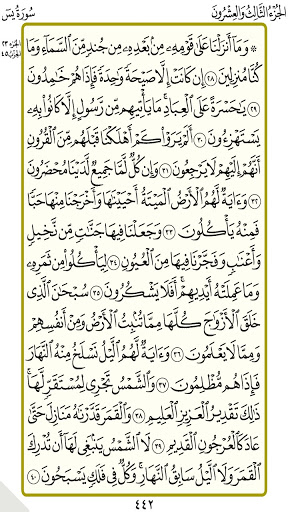 سُورَةُ يسٓ الجُزْءُ الثَّالِثُ وَالعِشْرُونَ
الجزء ٢٣
۞ وَمَآ أَنزَلْنَا عَلَىٰ قَوْمِهِۦ مِنۢ بَعْدِهِۦ مِن جُندٍ مِّنَ ٱلسَّمَآءِ وَمَا
كُنَّا مُنزِلِينَ ٢٨ إِن كَانَتْ إِلَّا صَيْحَةً وَٰحِدَةً فَإِذَا هُمْ خَٰمِدُونَ
٢٩ يَٰحَسْرَةً عَلَى ٱلْعِبَادِ ۚ مَا يَأْتِيهِم مِّن رَّسُولٍ إِلَّا كَانُوا۟ بِهِۦ
يَسْتَهْزِءُونَ ٣٠ أَلَمْ يَرَوْا۟ كَمْ أَهْلَكْنَا قَبْلَهُم مِّنَ ٱلْقُرُونِ
أَنَّهُمْ إِلَيْهِمْ لَا يَرْجِعُونَ ٣١ وَإِن كُلٌّ لَّمَّا جَمِيعٌ لَّدَيْنَا مُحْضَرُونَ
٣٢ وَءَايَةٌ لَّهُمُ ٱلْأَرْضُ ٱلْمَيْتَةُ أَحْيَيْنَٰهَا وَأَخْرَجْنَا مِنْهَا حَبًّا
فَمِنْهُ يَأْكُلُونَ ٣٣ وَجَعَلْنَا فِيهَا جَنَّٰتٍ مِّن نَّخِيلٍ
وَأَعْنَٰبٍ وَفَجَّرْنَا فِيهَا مِنَ ٱلْعُيُونِ ٣٤ لِيَأْكُلُوا۟ مِن ثَمَرِهِۦ
وَمَا عَمِلَتْهُ أَيْدِيهِمْ ۖ أَفَلَا يَشْكُرُونَ ٣٥ سُبْحَٰنَ ٱلَّذِى
خَلَقَ ٱلْأَزْوَٰجَ كُلَّهَا مِمَّا تُنۢبِتُ ٱلْأَرْضُ وَمِنْ أَنفُسِهِمْ
وَمِمَّا لَا يَعْلَمُونَ ٣٦ وَءَايَةٌ لَّهُمُ ٱلَّيْلُ نَسْلَخُ مِنْهُ ٱلنَّهَارَ
فَإِذَا هُم مُّظْلِمُونَ ٣٧ وَٱلشَّمْسُ تَجْرِى لِمُسْتَقَرٍّ لَّهَا ۚ
ذَٰلِكَ تَقْدِيرُ ٱلْعَزِيزِ ٱلْعَلِيمِ ٣٨ وَٱلْقَمَرَ قَدَّرْنَٰهُ مَنَازِلَ حَتَّىٰ
عَادَ كَٱلْعُرْجُونِ ٱلْقَدِيمِ ٣٩ لَا ٱلشَّمْسُ يَنۢبَغِى لَهَآ أَن تُدْرِكَ
ٱلْقَمَرَ وَلَا ٱلَّيْلُ سَابِقُ ٱلنَّهَارِ ۚ وَكُلٌّ فِى فَلَكٍ يَسْبَحُونَ ٤٠
٤٤٢